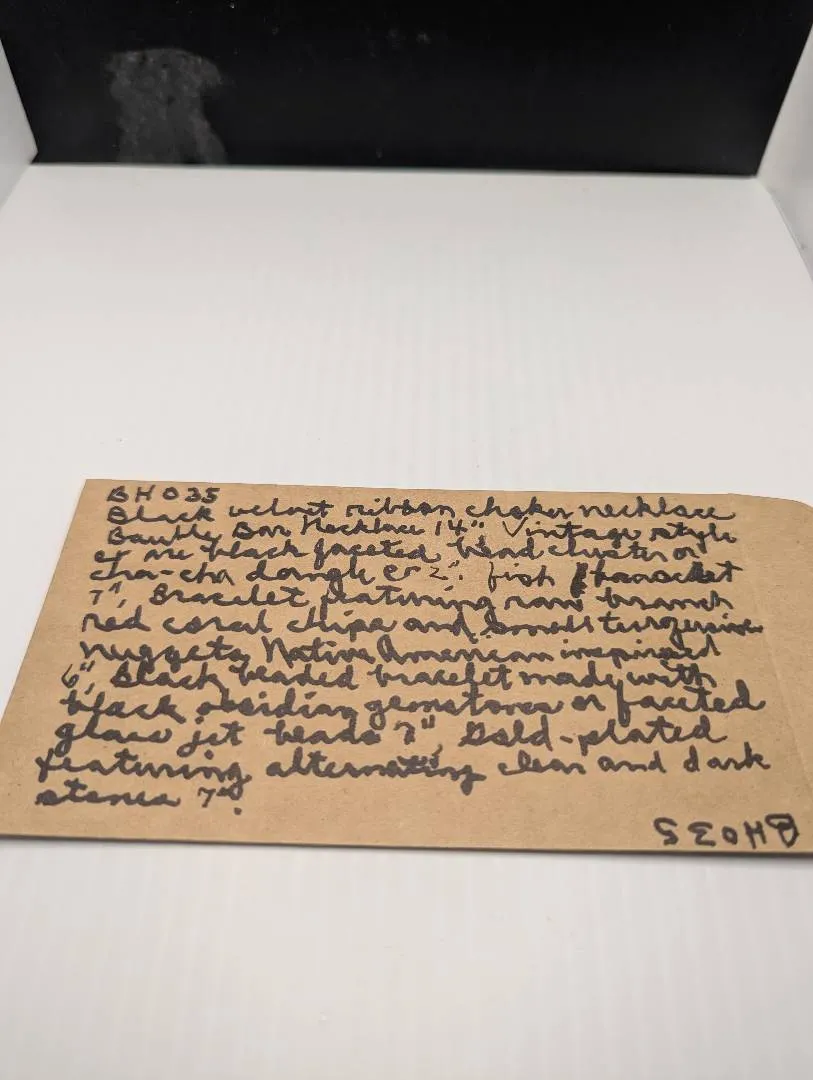 BH035
Black velvet ribbon choker necklace
Baubly Bar Necklace 14" Vintage style
black faceted bead cluster or
cha-cha dangle 2". fish bracelet
7", Bracelet featuring raw branch
red coral chips and small turquoise
nuggets, Native American inspired
6", Black beaded bracelet made with
black obsidian gemstones or faceted
glass jet beads 7", Gold-plated
featuring alternating clear and dark
stones 7".
BH035